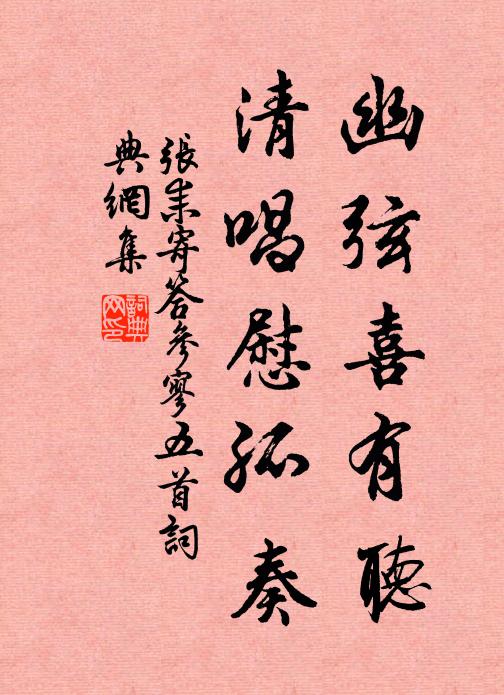 幽弦喜有聽
清唱慰孤奏
張耒寄答參寥五首詞
典網集
詞典網印